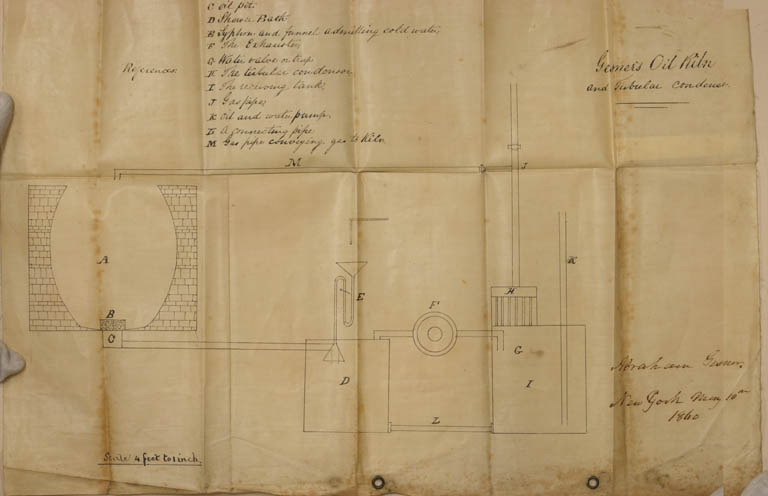 References.
C oil pit.
D Shower Bath
E Syphon and funnel admitting cold water,
F The Exhauster,
G Water valve or trap
H The tubular condensor
I The receiving tank,
J Gas pipe,
K Oil and water pump,
L A connecting pipe
M Gas pipe conveying gas to Kiln
Gesner's Oil Kiln
and Tubular Condenser.
M
J
A
E
K
H
B
F
C
G
D
I
L
Abraham Gesner.
New York May 10th
1860
Scale 4 feet to 1 inch.